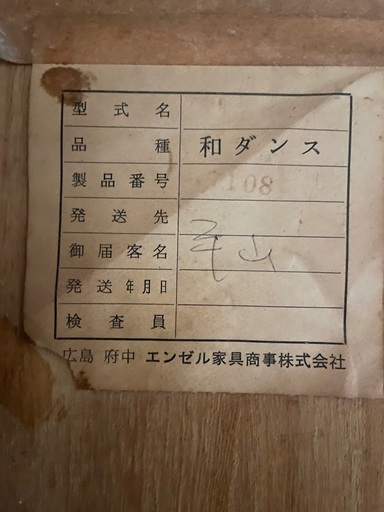 型式名
品種 和ダンス
製品番号 108
発送先
御届客名 平山
発送年月日
検査員
広島 府中 エンゼル家具商事株式会社